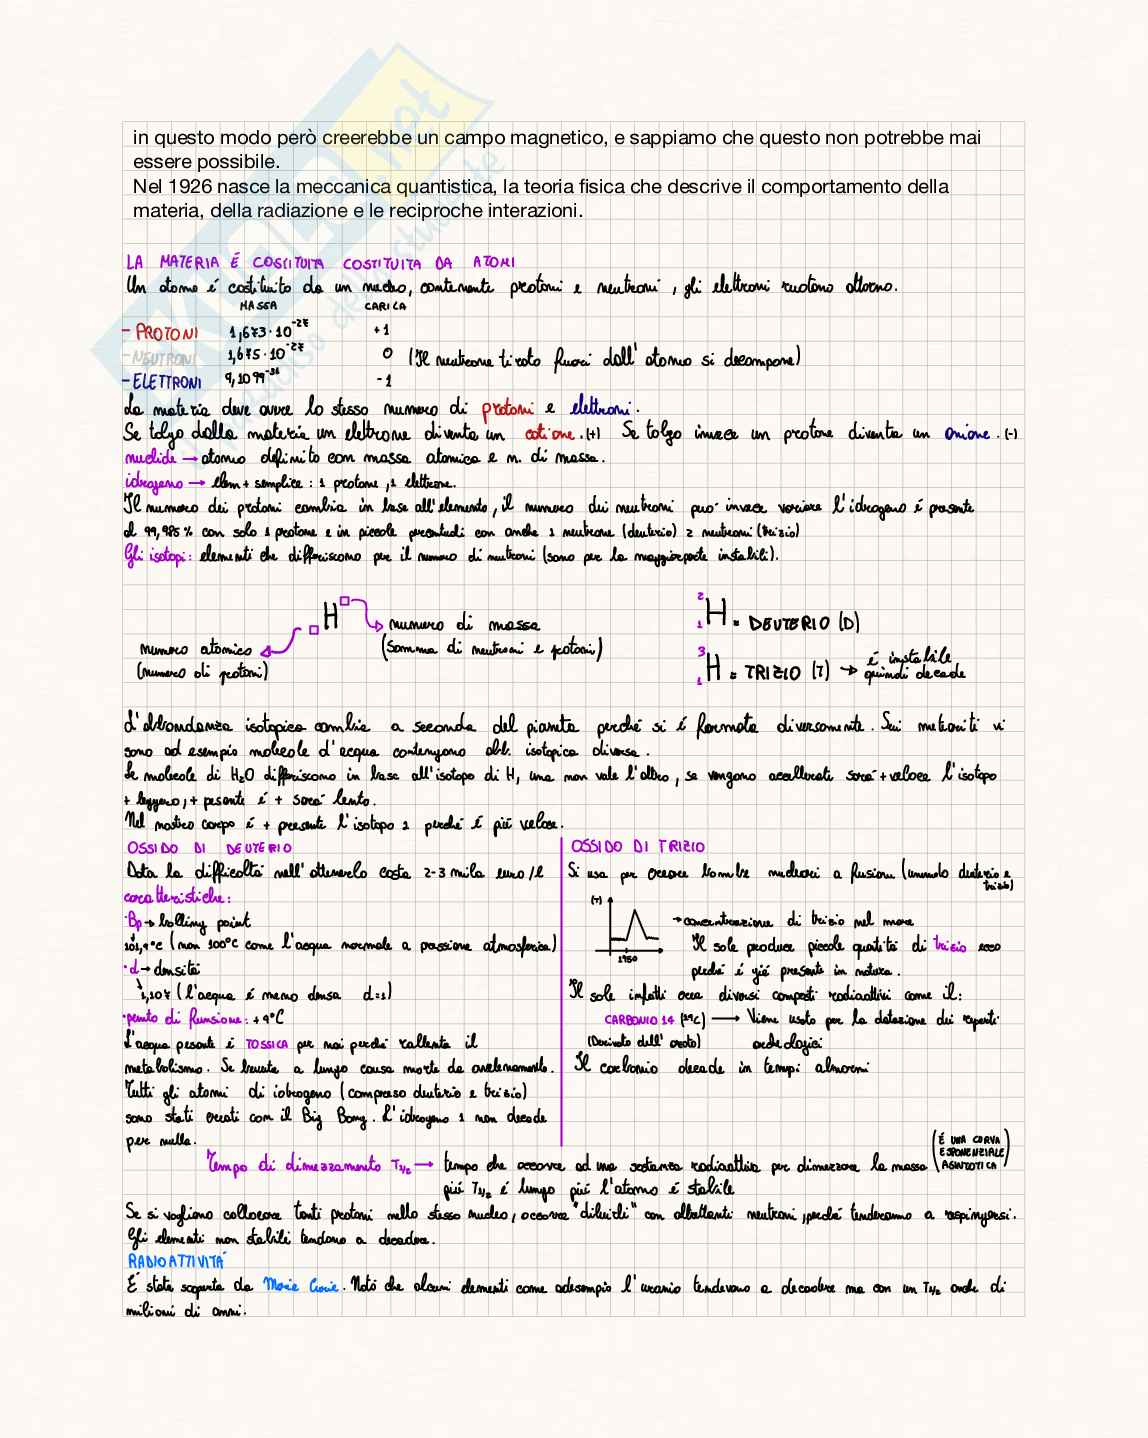 in questo modo però creerebbe un campo magnetico, e sappiamo che questo non potrebbe mai
essere possibile.
Nel 1926 nasce la meccanica quantistica, la teoria fisica che descrive il comportamento della
materia, della radiazione e le reciproche interazioni.
LA MATERIA É COSTITUITA COSTITUITA DA ATOMI
Un atomo é costituito da un nucleo, contenente protoni e neutroni, gli elettroni ruotano attorno.
MASSA CARICA
- PROTONI 1,673·10⁻²⁷ +1
- NEUTRONI 1,675·10⁻²⁷ 0 (Il neutrone tirato fuori dall'atomo si decompone)
- ELETTRONI 9,1099⁻³¹ -1
La materia deve avere lo stesso numero di protoni e elettroni.
Se tolgo dalla materia un elettrone diventa un catione.(+) Se tolgo invece un protone diventa un anione.(-)
nuclide → atomo definito con massa atomica e n. di massa.
idrogeno → elem + semplice: 1 protone, 1 elettrone.
Il numero dei protoni cambia in base all'elemento, il numero dei neutroni puó invece variare l'idrogeno é presente
al 99,985% con solo 1 protone e in piccole percentuali con anche 1 neutrone (deuterio) 2 neutroni (trizio)
Gli isotopi: elementi che differiscono per il numero di neutroni (sono per la maggiorparte instabili).
H → numero di massa
(somma di neutroni e protoni)
numero atomico
(numero di protoni)
²₁H = DEUTERIO (D)
³₁H = TRIZIO (T) → é instabile
quindi decade
L'abbondanza isotopica cambia a seconda del pianeta perché si é formata diversamente. Sui meteoriti vi
sono ad esempio molecole d'acqua contengono abb. isotopica diversa.
Le molecole di H₂O differiscono in base all'isotopo di H, una non vale l'altra, se vengono accellerati sará + veloce l'isotopo
+ leggero, + pesante é + sará lento.
Nel nostro corpo é + presente l'isotopo 1 perché é piú veloce.
OSSIDO DI DEUTERIO
Data la difficoltá nell'ottenerlo costa 2-3 mila euro/l
caratteristiche:
·Bp → boiling point
101,4°C (non 100°C come l'acqua normale a pressione atmosferica)
·d → densitá
1,107 (l'acqua é meno densa d=1)
·punto di funsione: +4°C
L'acqua pesante é TOSSICA per noi perché rallenta il
metabolismo. Se bevuta a lungo causa morte da avvelenamento.
Tutti gli atomi di idrogeno (compreso deuterio e trizio)
sono stati creati con il Big Bang. L'idrogeno 1 non decade
per nulla.
OSSIDO DI TRIZIO
Si usa per creare bombe nucleari a fusione (unendo deuterio e
trizio)
(T)
1950
→ concentrazione di trizio nel mare
Il sole produce piccole quantitá di trizio ecco
perché é giá presente in natura.
Il sole infatti crea diversi composti radioattivi come il:
CARBONIO 14 (¹⁴C) → Viene usato per la datazione dei reperti
(Derivato dell'azoto) archeologici
Il carbonio decade in tempi
Tempo di dimezzamento T₁/₂ → tempo che occorre ad una sostanza radioattiva per dimezzare la massa (É UNA CURVA
ESPONENZIALE
ASINTOTICA)
piú T₁/₂ é lungo piú l'atomo é stabile
Se si vogliono collocare tanti protoni nello stesso nucleo, occorre "diluirli" con altrettanti neutroni, perché tenderanno a respingersi.
Gli elementi non stabili tendono a decadere.
RADIOATTIVITÁ
É stata scoperta da Marie Curie. Notó che alcuni elementi come adesempio l'uranio tendevano a decadere ma con un T₁/₂ anche di
milioni di anni.